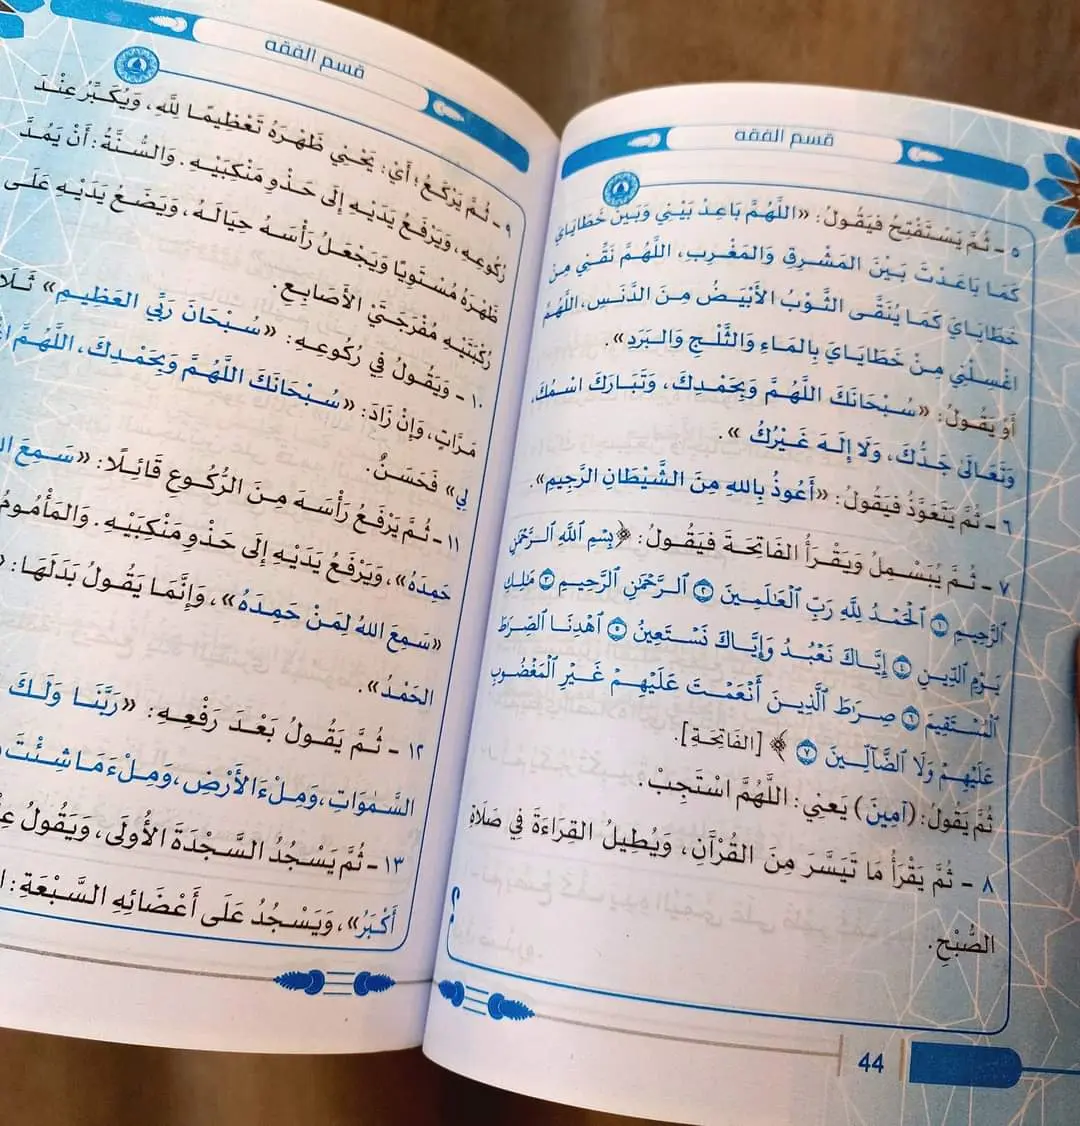 قسم الفقه
٥ - ثُمَّ يَسْتَفْتِحُ فَيَقُولُ: «اللَّهُمَّ بَاعِدْ بَيْنِي وَبَيْنَ خَطَايَايَ
كَمَا بَاعَدْتَ بَيْنَ المَشْرِقِ وَالمَغْرِبِ، اللَّهُمَّ نَقِّنِي مِنْ
خَطَايَايَ كَمَا يُنَقَّى الثَّوْبُ الأَبْيَضُ مِنَ الدَّنَسِ، اللَّهُمَّ
اغْسِلْنِي مِنْ خَطَايَايَ بِالمَاءِ وَالثَّلْجِ وَالبَرَدِ».
أَوْ يَقُولُ: «سُبْحَانَكَ اللَّهُمَّ وَبِحَمْدِكَ، وَتَبَارَكَ اسْمُكَ،
وَتَعَالَى جَدُّكَ، وَلَا إِلَهَ غَيْرُكَ».
٦ - ثُمَّ يَتَعَوَّذُ فَيَقُولُ: «أَعُوذُ بِاللهِ مِنَ الشَّيْطَانِ الرَّجِيمِ».
٧ - ثُمَّ يُبَسْمِلُ وَيَقْرَأُ الفَاتِحَةَ فَيَقُولُ: ﴿بِسْمِ ٱللَّهِ ٱلرَّحْمَٰنِ
ٱلرَّحِيمِ ١ ٱلْحَمْدُ لِلَّهِ رَبِّ ٱلْعَٰلَمِينَ ٢ ٱلرَّحْمَٰنِ ٱلرَّحِيمِ ٣ مَٰلِكِ
يَوْمِ ٱلدِّينِ ٤ إِيَّاكَ نَعْبُدُ وَإِيَّاكَ نَسْتَعِينُ ٥ ٱهْدِنَا ٱلصِّرَٰطَ
ٱلْمُسْتَقِيمَ ٦ صِرَٰطَ ٱلَّذِينَ أَنْعَمْتَ عَلَيْهِمْ غَيْرِ ٱلْمَغْضُوبِ
عَلَيْهِمْ وَلَا ٱلضَّآلِّينَ ٧﴾ [الفَاتِحَةِ].
ثُمَّ يَقُولُ: (آمِينَ) يَعْنِي: اللَّهُمَّ اسْتَجِبْ.
٨ - ثُمَّ يَقْرَأُ مَا تَيَسَّرَ مِنَ القُرْآنِ، وَيُطِيلُ القِرَاءَةَ فِي صَلَاةِ
الصُّبْحِ.
44
قسم الفقه
٩ - ثُمَّ يَرْكَعُ؛ أَيْ: يَحْنِي ظَهْرَهُ تَعْظِيمًا لِلَّهِ، وَيُكَبِّرُ عِنْدَ
رُكُوعِهِ، وَيَرْفَعُ يَدَيْهِ إِلَى حَذْوِ مَنْكِبَيْهِ. وَالسُّنَّةُ: أَنْ يَمُدَّ
ظَهْرَهُ مُسْتَوِيًا وَيَجْعَلُ رَأْسَهُ حِيَالَهُ، وَيَضَعُ يَدَيْهِ عَلَى
رُكْبَتَيْهِ مُفَرَّجَتَيْ الأَصَابِعِ.
١٠ - وَيَقُولُ فِي رُكُوعِهِ: «سُبْحَانَ رَبِّيَ العَظِيمِ»
مَرَّاتٍ، وَإِنْ زَادَ: «سُبْحَانَكَ اللَّهُمَّ وَبِحَمْدِكَ، اللَّهُمَّ
لِي» فَحَسَنٌ.
١١ - ثُمَّ يَرْفَعُ رَأْسَهُ مِنَ الرُّكُوعِ قَائِلًا: «سَمِعَ
حَمِدَهُ»، وَيَرْفَعُ يَدَيْهِ إِلَى حَذْوِ مَنْكِبَيْهِ. وَالمَأْمُومُ
«سَمِعَ اللهُ لِمَنْ حَمِدَهُ»، وَإِنَّمَا يَقُولُ بَدَلَهَا:
الحَمْدُ».
١٢ - ثُمَّ يَقُولُ بَعْدَ رَفْعِهِ: «رَبَّنَا وَلَكَ
السَّمٰوَاتِ، وَمِلْءَ الأَرْضِ، وَمِلْءَ مَا شِئْتَ
١٣ - ثُمَّ يَسْجُدُ السَّجْدَةَ الأُولَى، وَيَقُولُ
أَكْبَرُ»، وَيَسْجُدُ عَلَى أَعْضَائِهِ السَّبْعَةِ: